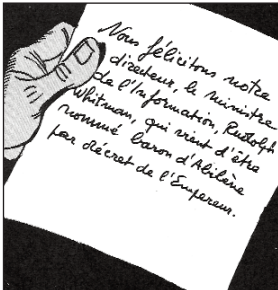 Nous félicitons notre
directeur, le ministre
de l'Information, Rudolph
Whitman, qui vient d'être
nommé baron d'Abilène
par décret de l'Empereur.